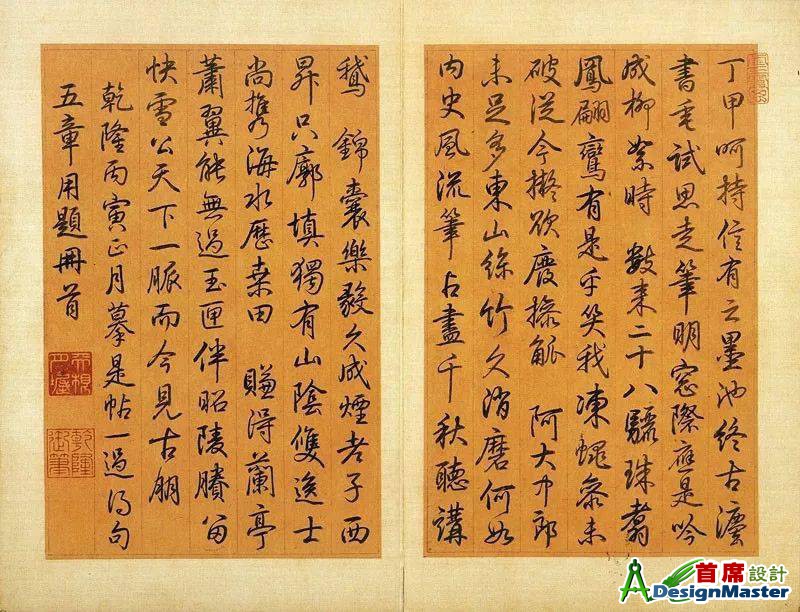 丁甲呵持信有之墨池終古瀋
書毫試思走筆明窓際應是吟
成柳絮時 數來二十八驪珠翥
鳳翩鸞有是乎笑我凍蠅參未
破從今擬欲廢操觚 阿大中郎
未足多東山絲竹久消磨何如
內史風流筆占盡千秋聽講
鵝 錦囊樂毅久成煙老子西
昇只廓填獨有山陰雙逸士
尚携海水歷桑田 賺得蘭亭
蕭翼能無過玉匣伴昭陵賸留
快雪公天下一脈而今見古朋
乾隆丙寅正月摹是帖一過得句
五章用題冊首
乾隆
御筆
首席設計
ADesignMaster